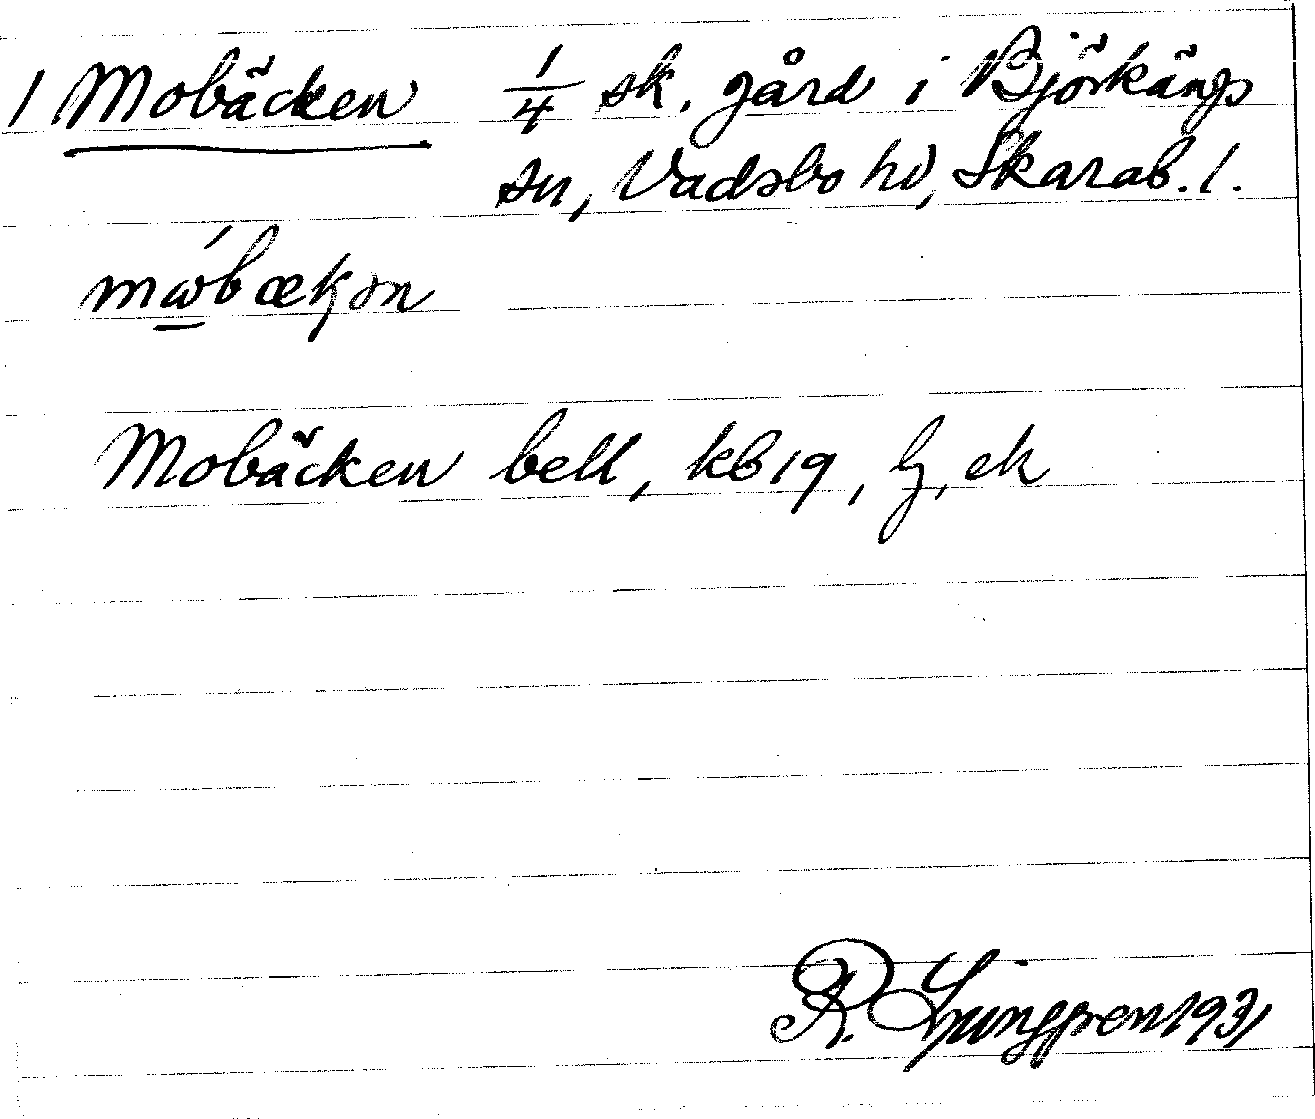 1 Mobäcken 1/4 sk. gård i Björkängs
sn, Vadsbo hd, Skarab. l.
Mobäcken bell, kb 19, lj, ek
R. Ljunggren 1931